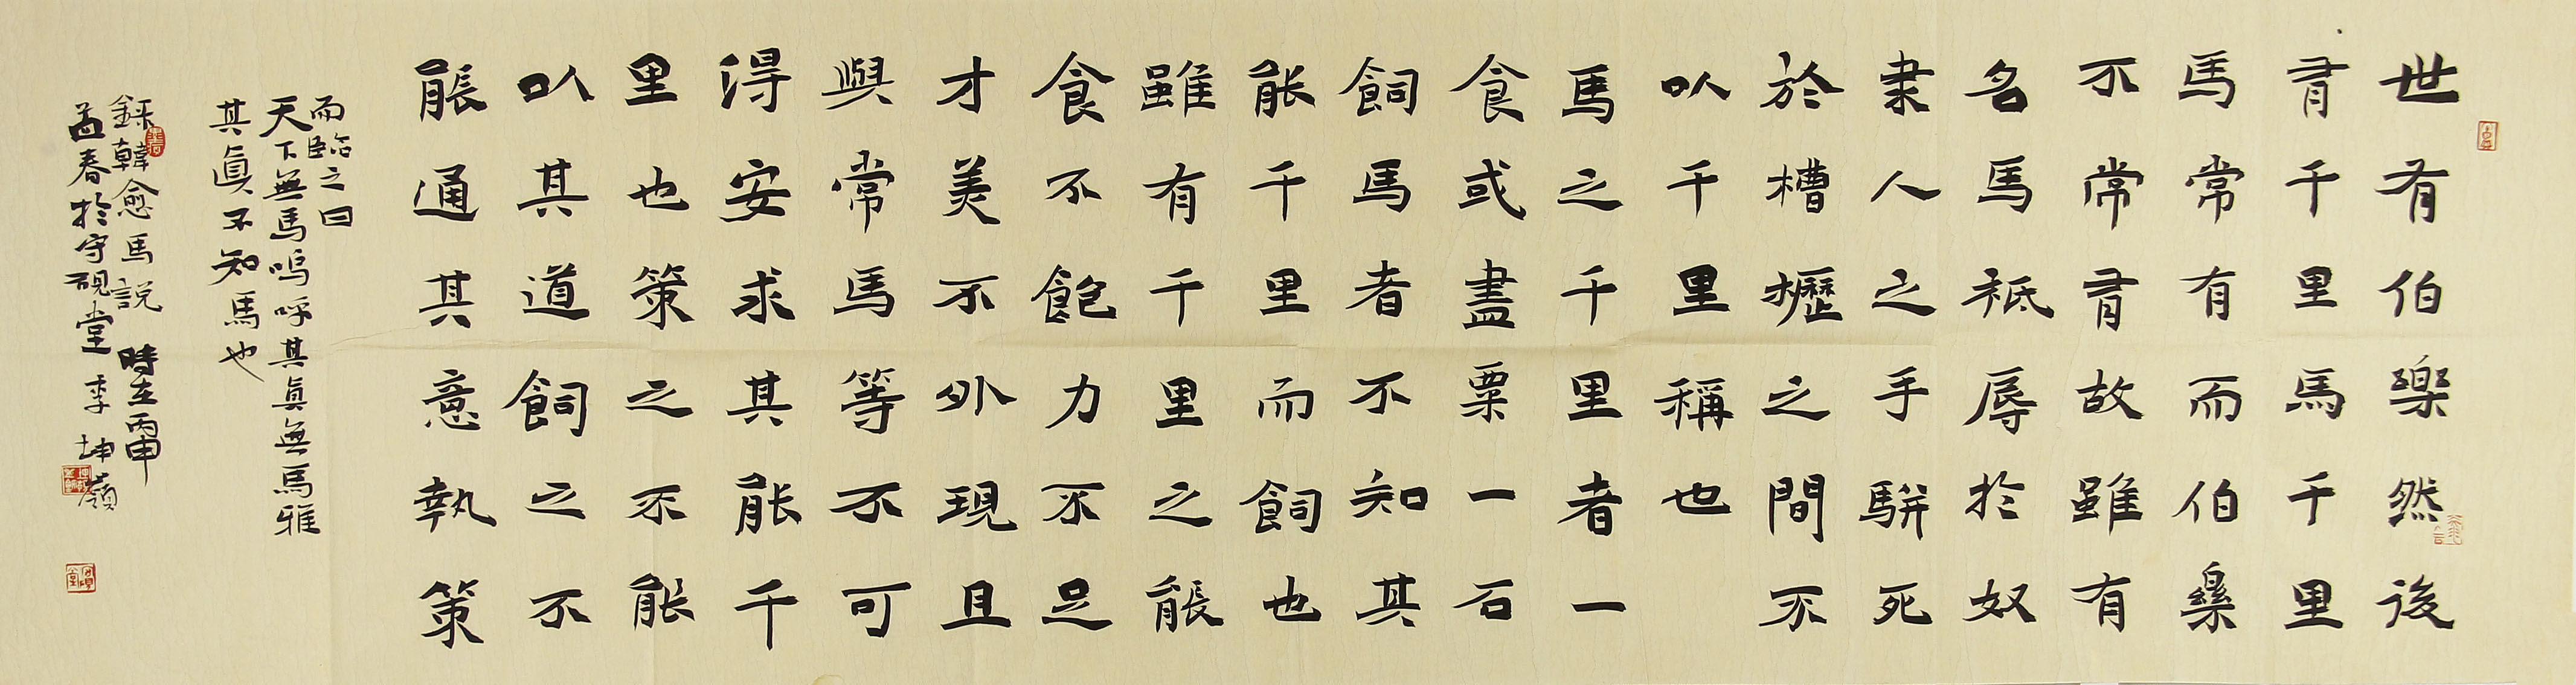 世有伯樂然後
有千里馬千里
馬常有而伯樂
不常有故雖有
名馬祗辱於奴
隶人之手駢死
於槽櫪之間不
以千里稱也
馬之千里者一
食或盡粟一石
飼馬者不知其
能千里而飼也
雖有千里之能
食不飽力不足
才美不外現且
與常馬等不可
得安求其能千
里也策之不能
以其道飼之不
能通其意執策
而臨之曰
天下無馬嗚呼其真無馬雅
其真不知馬也
録韓愈馬説 時在丙申
孟春於守硯堂 季坤嶺